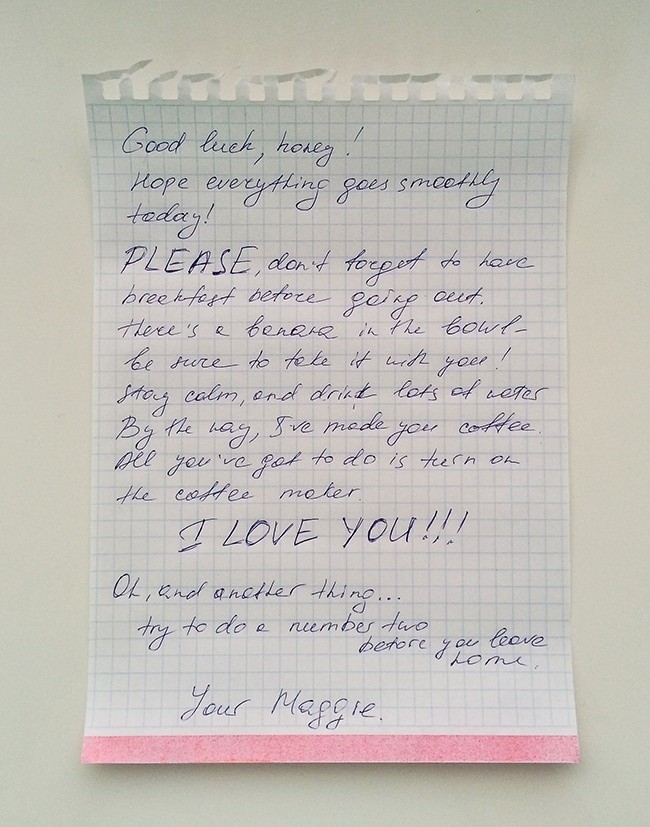 Good luck, honey!
Hope everything goes smoothly
today!
PLEASE, don't forget to have
breakfast before going out.
There's a banana in the bowl-
be sure to take it with you!
Stay calm, and drink lots of water
By the way, I've made you coffee.
All you've got to do is turn on
the coffee maker.
I LOVE YOU!!!
Oh, and another thing...
try to do a number two
before you leave
home.
Your Maggie.